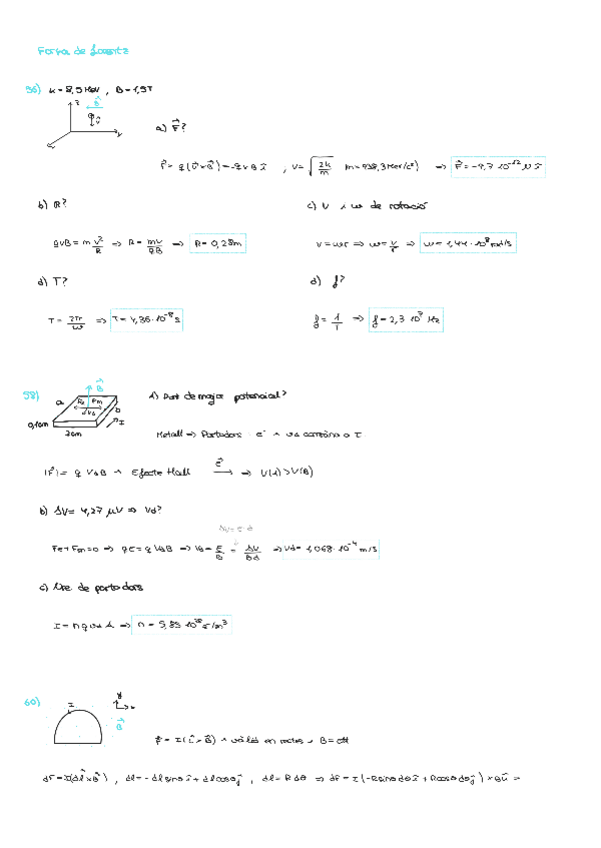 Força de Lorentz
56) K = 8,5 MeV , B = 1,5T
z B
v
y
a) F?
F = q(v×B) = -qvB x , v = √(2k/m) m = 938,3 MeV/c²) => F = -9,7·10⁻¹² N x
b) R? c) v i ω de rotació
qvB = m v²/R => R = mv/qB => R = 0,28m v = ωr => ω = v/r => ω = 1,44·10⁸ rad/s
d) T? d) f?
T = 2π/ω => T = 4,36·10⁻⁸ s f = 1/T => f = 2,3·10⁷ Hz
58) B
a b
Fm
Vd
0,1cm I
2cm
A) Punt de major potencial?
Metall => Portadors e⁻ i vd contrària a I
|F| = q Vd B i Efecte Hall E => V(A) > V(B)
b) ΔV = 4,27 μV => Vd?
Fe + Fm = 0 => qE = qVdB => Vd = E/B = ΔV/Bd => Vd = 1,068·10⁻⁴ m/s
c) Nre de portadors
I = n q vd A => n = 5,85·10²⁸ e⁻/m³
60) I
y
x
B
F = I(L×B) i vàlid en rectes i B = ctt
dF = I(dl×B) , dl = -dl sinθ x + dl cosθ y , dl = R dθ => dF = I(-R sinθ dθ x + R cosθ dθ y) × B u =